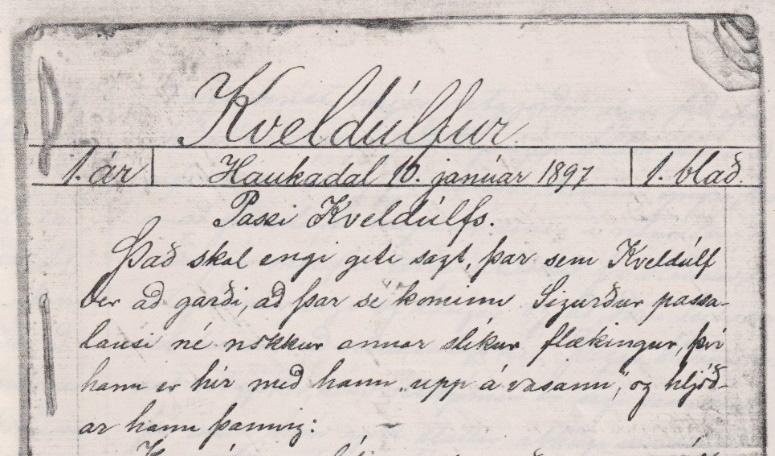 Kveldúlfur.
1. ár Haukadal 10. janúar 1897 1. blað.
Passi Kveldúlfs.
Það skal engi geta sagt, þar sem Kveldúlf
ber að garði, að þar sé kominn Sigurður passa-
lausi né nokkur annar slíkur flækingur, því
hann er hér með hann „upp á vasann,“ og hljóð-
ar hann þannig: